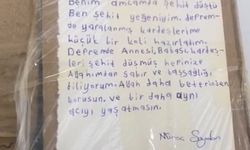 Benim amcamda şehit düştü
Ben şehit yeğeniyim. deprem-
de yaralanmış kardeşlerime
küçük bir koli hazırlattım.
Depremde Annesi, Babası, kardeş-
leri şehit düşmüş hepinize
Allahımdan sabır ve başsağlığı
diliyorum. Allah daha beterinden
korusun. ve bir daha aynı
acıyı yaşatmasın.